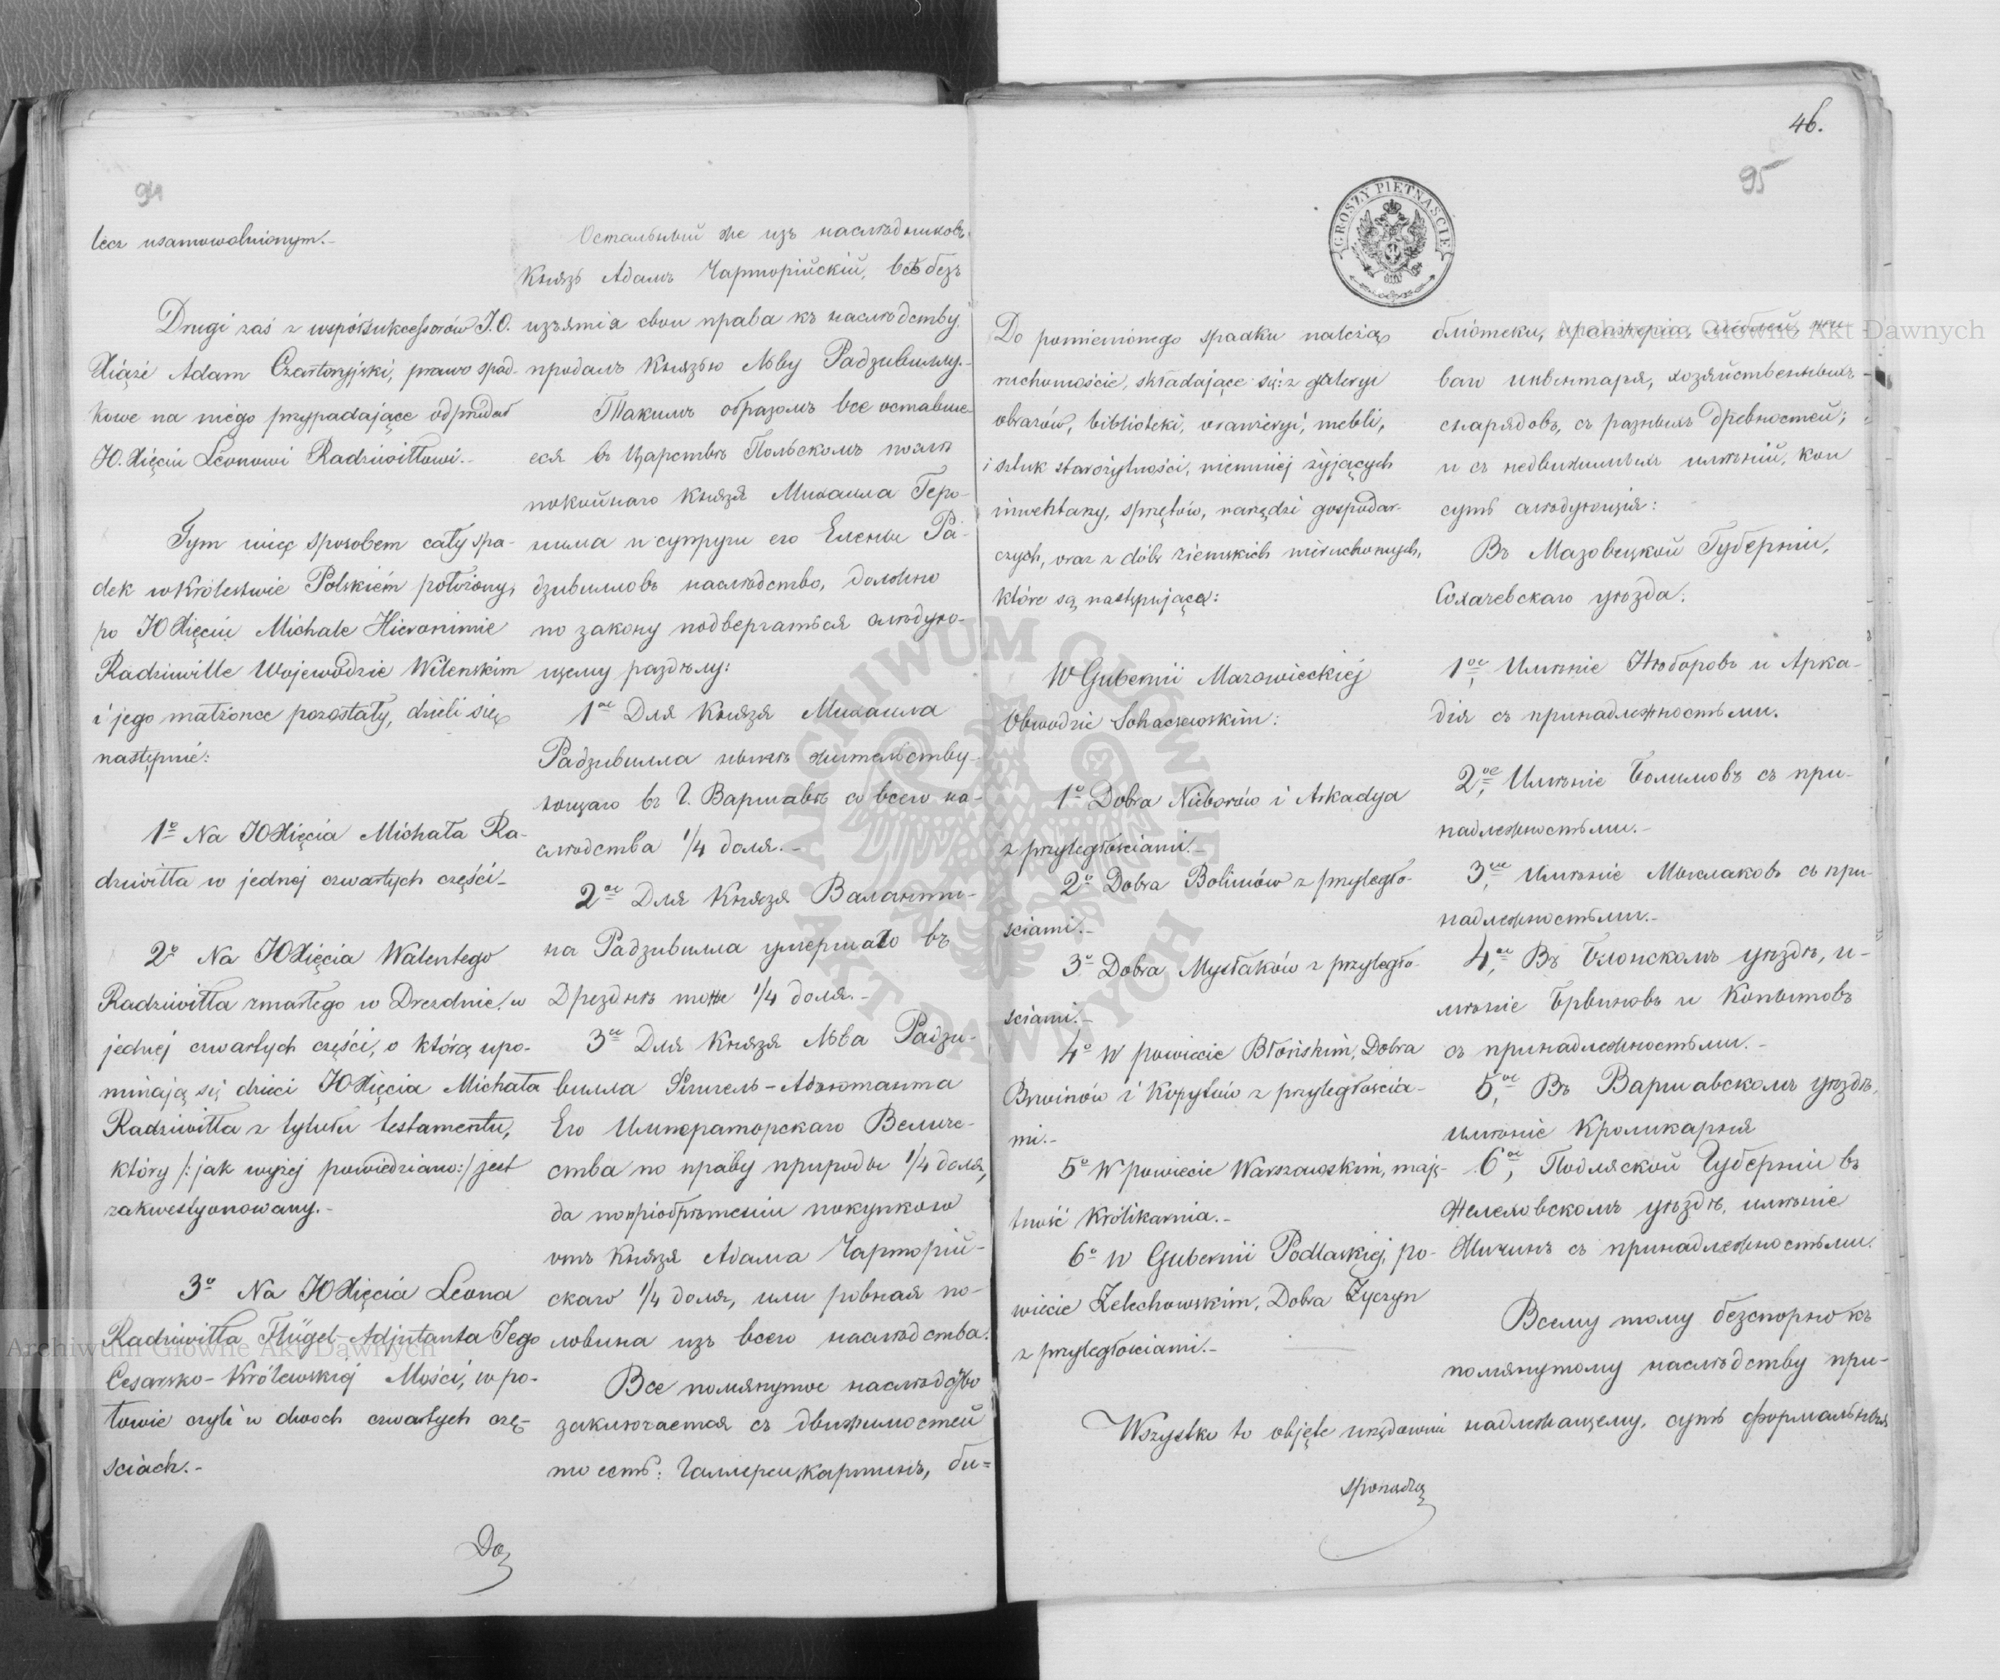 94
lecz usamowolnionym.-
Drugi zaś z współsukcessorów J.O.
Xiąże Adam Czartoryjski, prawo spad-
kowe na niego przypadające odprzedał
JO. Xięciu Leonowi Radziwiłłowi.-
Tym więc sposobem cały spa-
dek w Królestwie Polskiém położony,
po JO Xięciu Michale Hieronimie
Radziwille Wojewodzie Wilenskim
i jego małżonce pozostały, dzieli się
następnie:
1º Na JOXięcia Michała Ra-
dziwiłła w jednej czwartych części_
2º Na JOXięcia Walentego
Radziwiłła zmarłego w Dreznie, w
jednej czwartych części, o którą upo-
minają się dzieci JOXięcia Michała
Radziwiłła z tytułu testamentu,
który /:jak wyżej powiedziano:/ jest
zakwestyonowany.-
3º Na JOXięcia Leona
Radziwiłła Flügel-Adjutanta Jego
Cesarsko-Królewskiej Mości, w po-
łowie czyli w dwoch czwartych czę-
sciach.-
Do
Остальный же изъ наслѣдниковъ,
Князь Адамъ Чарторійскій, всѣ безъ
изъятія свои права къ наслѣдству
продалъ Князью Льву Радзивиллу.-
Такимъ образомъ все оставше-
еся въ Царствѣ Польскомъ послѣ
покойнаго Князя Михаила Геро-
нима и супруги его Елены Ра-
дзивилловъ наслѣдство, должно
по закону подвергаться слѣдую-
щему раздѣлу:
1ое Для Князя Михаила
Радзивилла нынѣ жительству-
ющаго въ Г. Варшавѣ со всего на-
слѣдства 1/4 доля.-
2ое Для Князя Валенти-
на Радзивилла умершаго въ
Дрезднѣ тоже 1/4 доля.-
3ое Для Князя Льва Радзи-
вилла Флигель-Адъютанта
Его Императорскаго Величе-
ства по праву природы 1/4 доля,
да по пріобрѣтеніи покупкою
отъ Князя Адама Чарторій-
скаго 1/4 доля, или ровная по-
ловина изъ всего наслѣдства.
Все помянутое наслѣдство
заключается съ движимостей
то есть: Галлереи картинъ, би=
46.
95
GROSZY PIĘTNAŚCIE
Do pomienionego spadku należą
ruchomoście, składające się: z galeryi
obrazów, biblioteki, oranżeryi, mebli,
i sztuk starożytności, niemniej żyjących
inwentarzy, sprzętów, narzędzi gospodar-
czych, oraz z dóbr ziemskich nieruchomych,
które są następujące:
W Gubernii Mazowieckiej
Obwodzie Sohaczewskim:
1º Dobra Nieborów i Arkadya
z przyległościami.-
2º Dobra Bolimów z przyległo-
sciami.-
3º Dobra Mysłaków z przyległo-
sciami.-
4º W powiecie Błońskim, Dobra
Brwinów i Kopytów z przyległościa-
mi.-
5º W powiecie Warszawskim, maję-
tność Królikarnia.-
6º W Gubernii Podlaskiej, po-
wiecie Żelechowskim, Dobra Życzyn
z przyległościami.-
Wszystko to objęte urzędownie
sporządzą
бліотеки, оранжеріи, мебели, жи-
ваго инвентаря, хозяйственныхъ
снарядовъ, съ разныхъ древностей;
и съ недвижимыхъ имѣній, кои
суть слѣдующія:
Въ Мазовецкой Губерніи,
Сохачевскаго уѣзда:
1ое, Имѣніе Неборовъ и Арка-
дія съ принадлежностьми.
2ое, Имѣніе Болимовъ съ при-
надлежностьми.-
3ое, Имѣніе Мыслаковъ съ при-
надлежностьми.-
4ое, Въ Блонскомъ уѣздѣ, и-
мѣніе Брвиновъ и Копытовъ
съ принадлежностьми.-
5ое, Въ Варшавскомъ уѣздѣ,
имѣніе Кроликарня
6ое, Подляской Губерніи въ
Желеховскомъ уѣздѣ, имѣніе
Жичинъ съ принадлежностьми.
Всему тому безспорно къ
помянутому наслѣдству при-
надлежащему, суть формальныя
Archiwum Główne Akt Dawnych
Archiwum Główne Akt Dawnych
ARCHIWUM GŁÓWNE AKT DAWNYCH